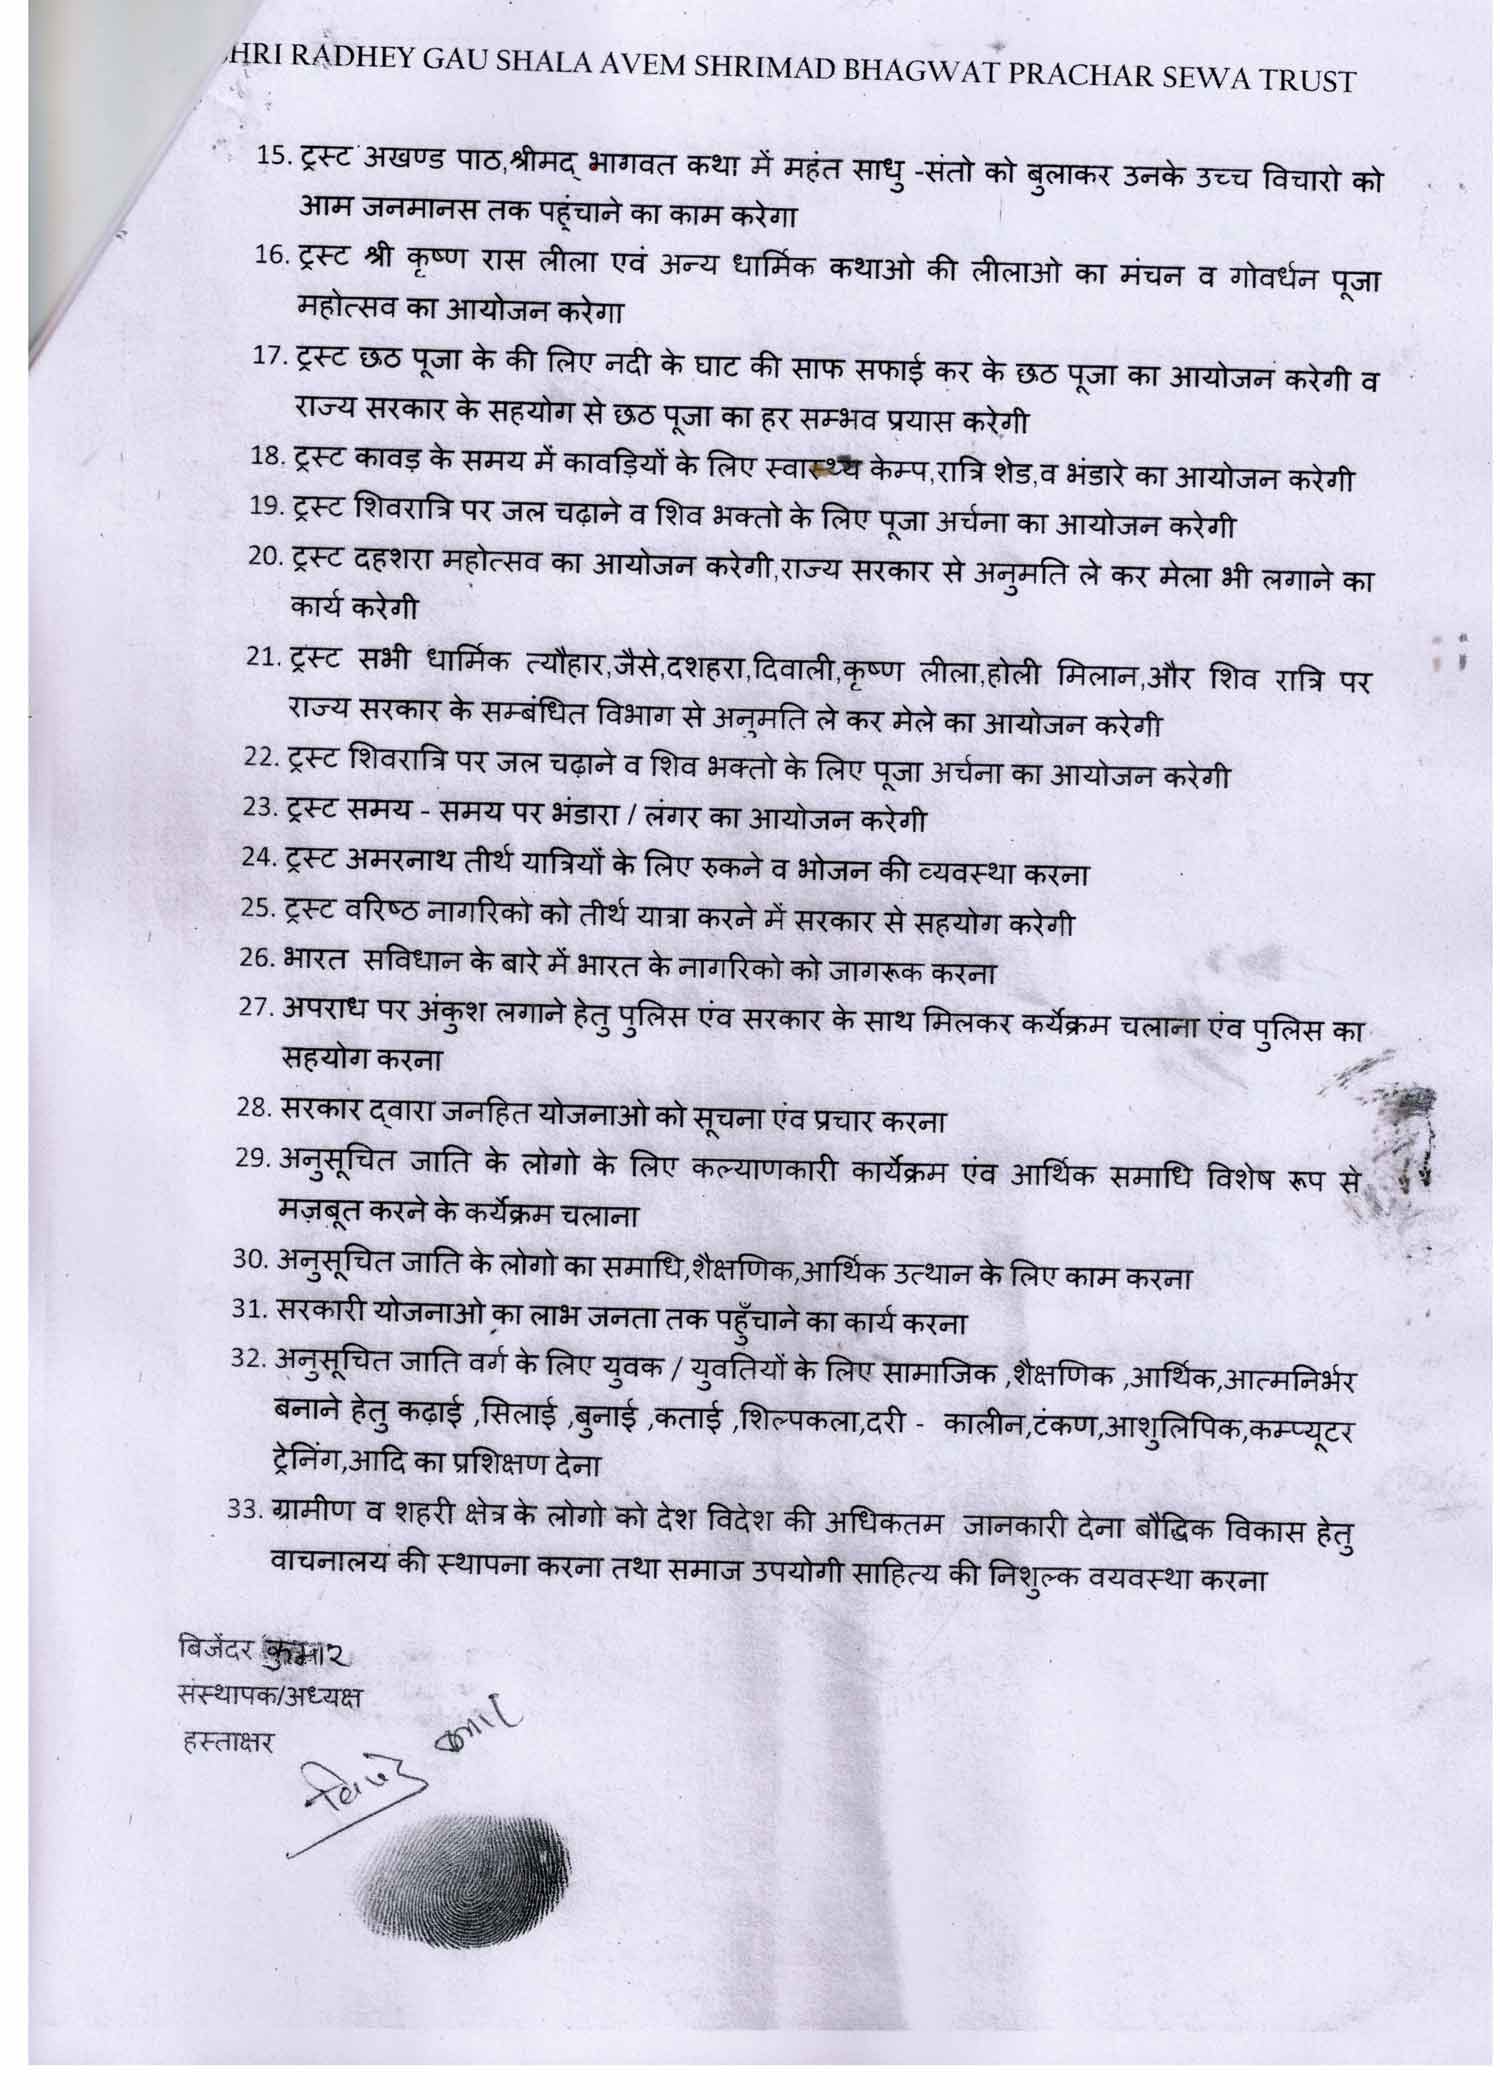 SHRI RADHEY GAU SHALA AVEM SHRIMAD BHAGWAT PRACHAR SEWA TRUST
15. ट्रस्ट अखण्ड पाठ,श्रीमद् भागवत कथा में महंत साधु -संतो को बुलाकर उनके उच्च विचारो को
आम जनमानस तक पहूंचाने का काम करेगा
16. ट्रस्ट श्री कृष्ण रास लीला एवं अन्य धार्मिक कथाओ की लीलाओ का मंचन व गोवर्धन पूजा
महोत्सव का आयोजन करेगा
17. ट्रस्ट छठ पूजा के की लिए नदी के घाट की साफ सफाई कर के छठ पूजा का आयोजन करेगी व
राज्य सरकार के सहयोग से छठ पूजा का हर सम्भव प्रयास करेगी
18. ट्रस्ट कावड़ के समय में कावड़ियों के लिए स्वास्थ्य केम्प,रात्रि शेड,व भंडारे का आयोजन करेगी
19. ट्रस्ट शिवरात्रि पर जल चढ़ाने व शिव भक्तो के लिए पूजा अर्चना का आयोजन करेगी
20. ट्रस्ट दहशरा महोत्सव का आयोजन करेगी,राज्य सरकार से अनुमति ले कर मेला भी लगाने का
कार्य करेगी
21. ट्रस्ट सभी धार्मिक त्यौहार,जैसे,दशहरा,दिवाली,कृष्ण लीला,होली मिलान,और शिव रात्रि पर
राज्य सरकार के सम्बंधित विभाग से अनुमति ले कर मेले का आयोजन करेगी
22. ट्रस्ट शिवरात्रि पर जल चढ़ाने व शिव भक्तो के लिए पूजा अर्चना का आयोजन करेगी
23. ट्रस्ट समय - समय पर भंडारा / लंगर का आयोजन करेगी
24. ट्रस्ट अमरनाथ तीर्थ यात्रियों के लिए रुकने व भोजन की व्यवस्था करना
25. ट्रस्ट वरिष्ठ नागरिको को तीर्थ यात्रा करने में सरकार से सहयोग करेगी
26. भारत सविधान के बारे में भारत के नागरिको को जागरूक करना
27. अपराध पर अंकुश लगाने हेतु पुलिस एंव सरकार के साथ मिलकर कर्येक्रम चलाना एंव पुलिस का
सहयोग करना
28. सरकार द्वारा जनहित योजनाओ को सूचना एंव प्रचार करना
29. अनुसूचित जाति के लोगो के लिए कल्याणकारी कार्येक्रम एंव आर्थिक समाधि विशेष रूप से
मज़बूत करने के कर्येक्रम चलाना
30. अनुसूचित जाति के लोगो का समाधि,शैक्षणिक,आर्थिक उत्थान के लिए काम करना
31. सरकारी योजनाओ का लाभ जनता तक पहुँचाने का कार्य करना
32. अनुसूचित जाति वर्ग के लिए युवक / युवतियों के लिए सामाजिक ,शैक्षणिक ,आर्थिक,आत्मनिर्भर
बनाने हेतु कढ़ाई ,सिलाई ,बुनाई ,कताई ,शिल्पकला,दरी - कालीन,टंकण,आशुलिपिक,कम्प्यूटर
ट्रेनिंग,आदि का प्रशिक्षण देना
33. ग्रामीण व शहरी क्षेत्र के लोगो को देश विदेश की अधिकतम जानकारी देना बौद्धिक विकास हेतु
वाचनालय की स्थापना करना तथा समाज उपयोगी साहित्य की निशुल्क वयवस्था करना
बिजेंदर कुमार
संस्थापक/अध्यक्ष
हस्ताक्षर